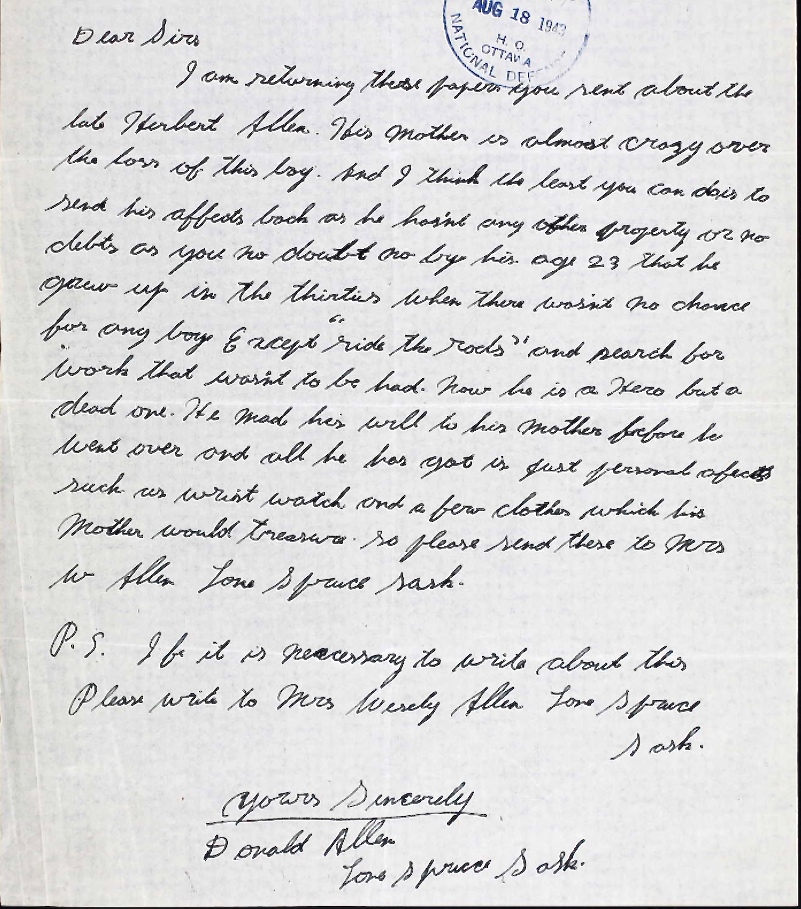 AUG 18 1943
H. Q.
OTTAWA
NATIONAL DEFEN
Dear Sirs
I am returning these papers you sent about the
late Herbert Allen. His Mother is almost crazy over
the loss of this boy. And I think the least you can do is to
send his affects back as he hasnt any other property or no
debts as you no doubt no by his age 23 that he
grew up in the thirties when there wasnt no chance
for any boy Except "ride the rods" and search for
work that wasnt to be had. Now he is a Hero but a
dead one. He mad his will to his Mother before he
went over and all he has got is just personal afects
such as wrist watch and a few clothes which his
Mother would treasure. so please send these to Mrs
W Allen Lone Spruce Sask.
P.S. If it is necessary to write about this
Please write to Mrs Wesely Allen Lone Spruce
Sask.
Yours Sincerely
Donald Allen
Lone Spruce Sask.